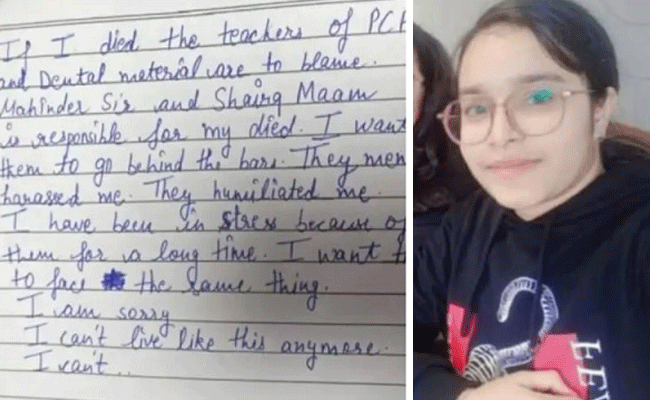 If I died the teachers of PCP
and Dental material are to blame.
Mahinder Sir and Shairg Maam
is responsible for my died. I want
them to go behind the bars. They men
harassed me. They humiliated me.
I have been in stress because of
them for a long time. I want t
to face the same thing.
I am sorry
I can't live like this anymore.
I can't..